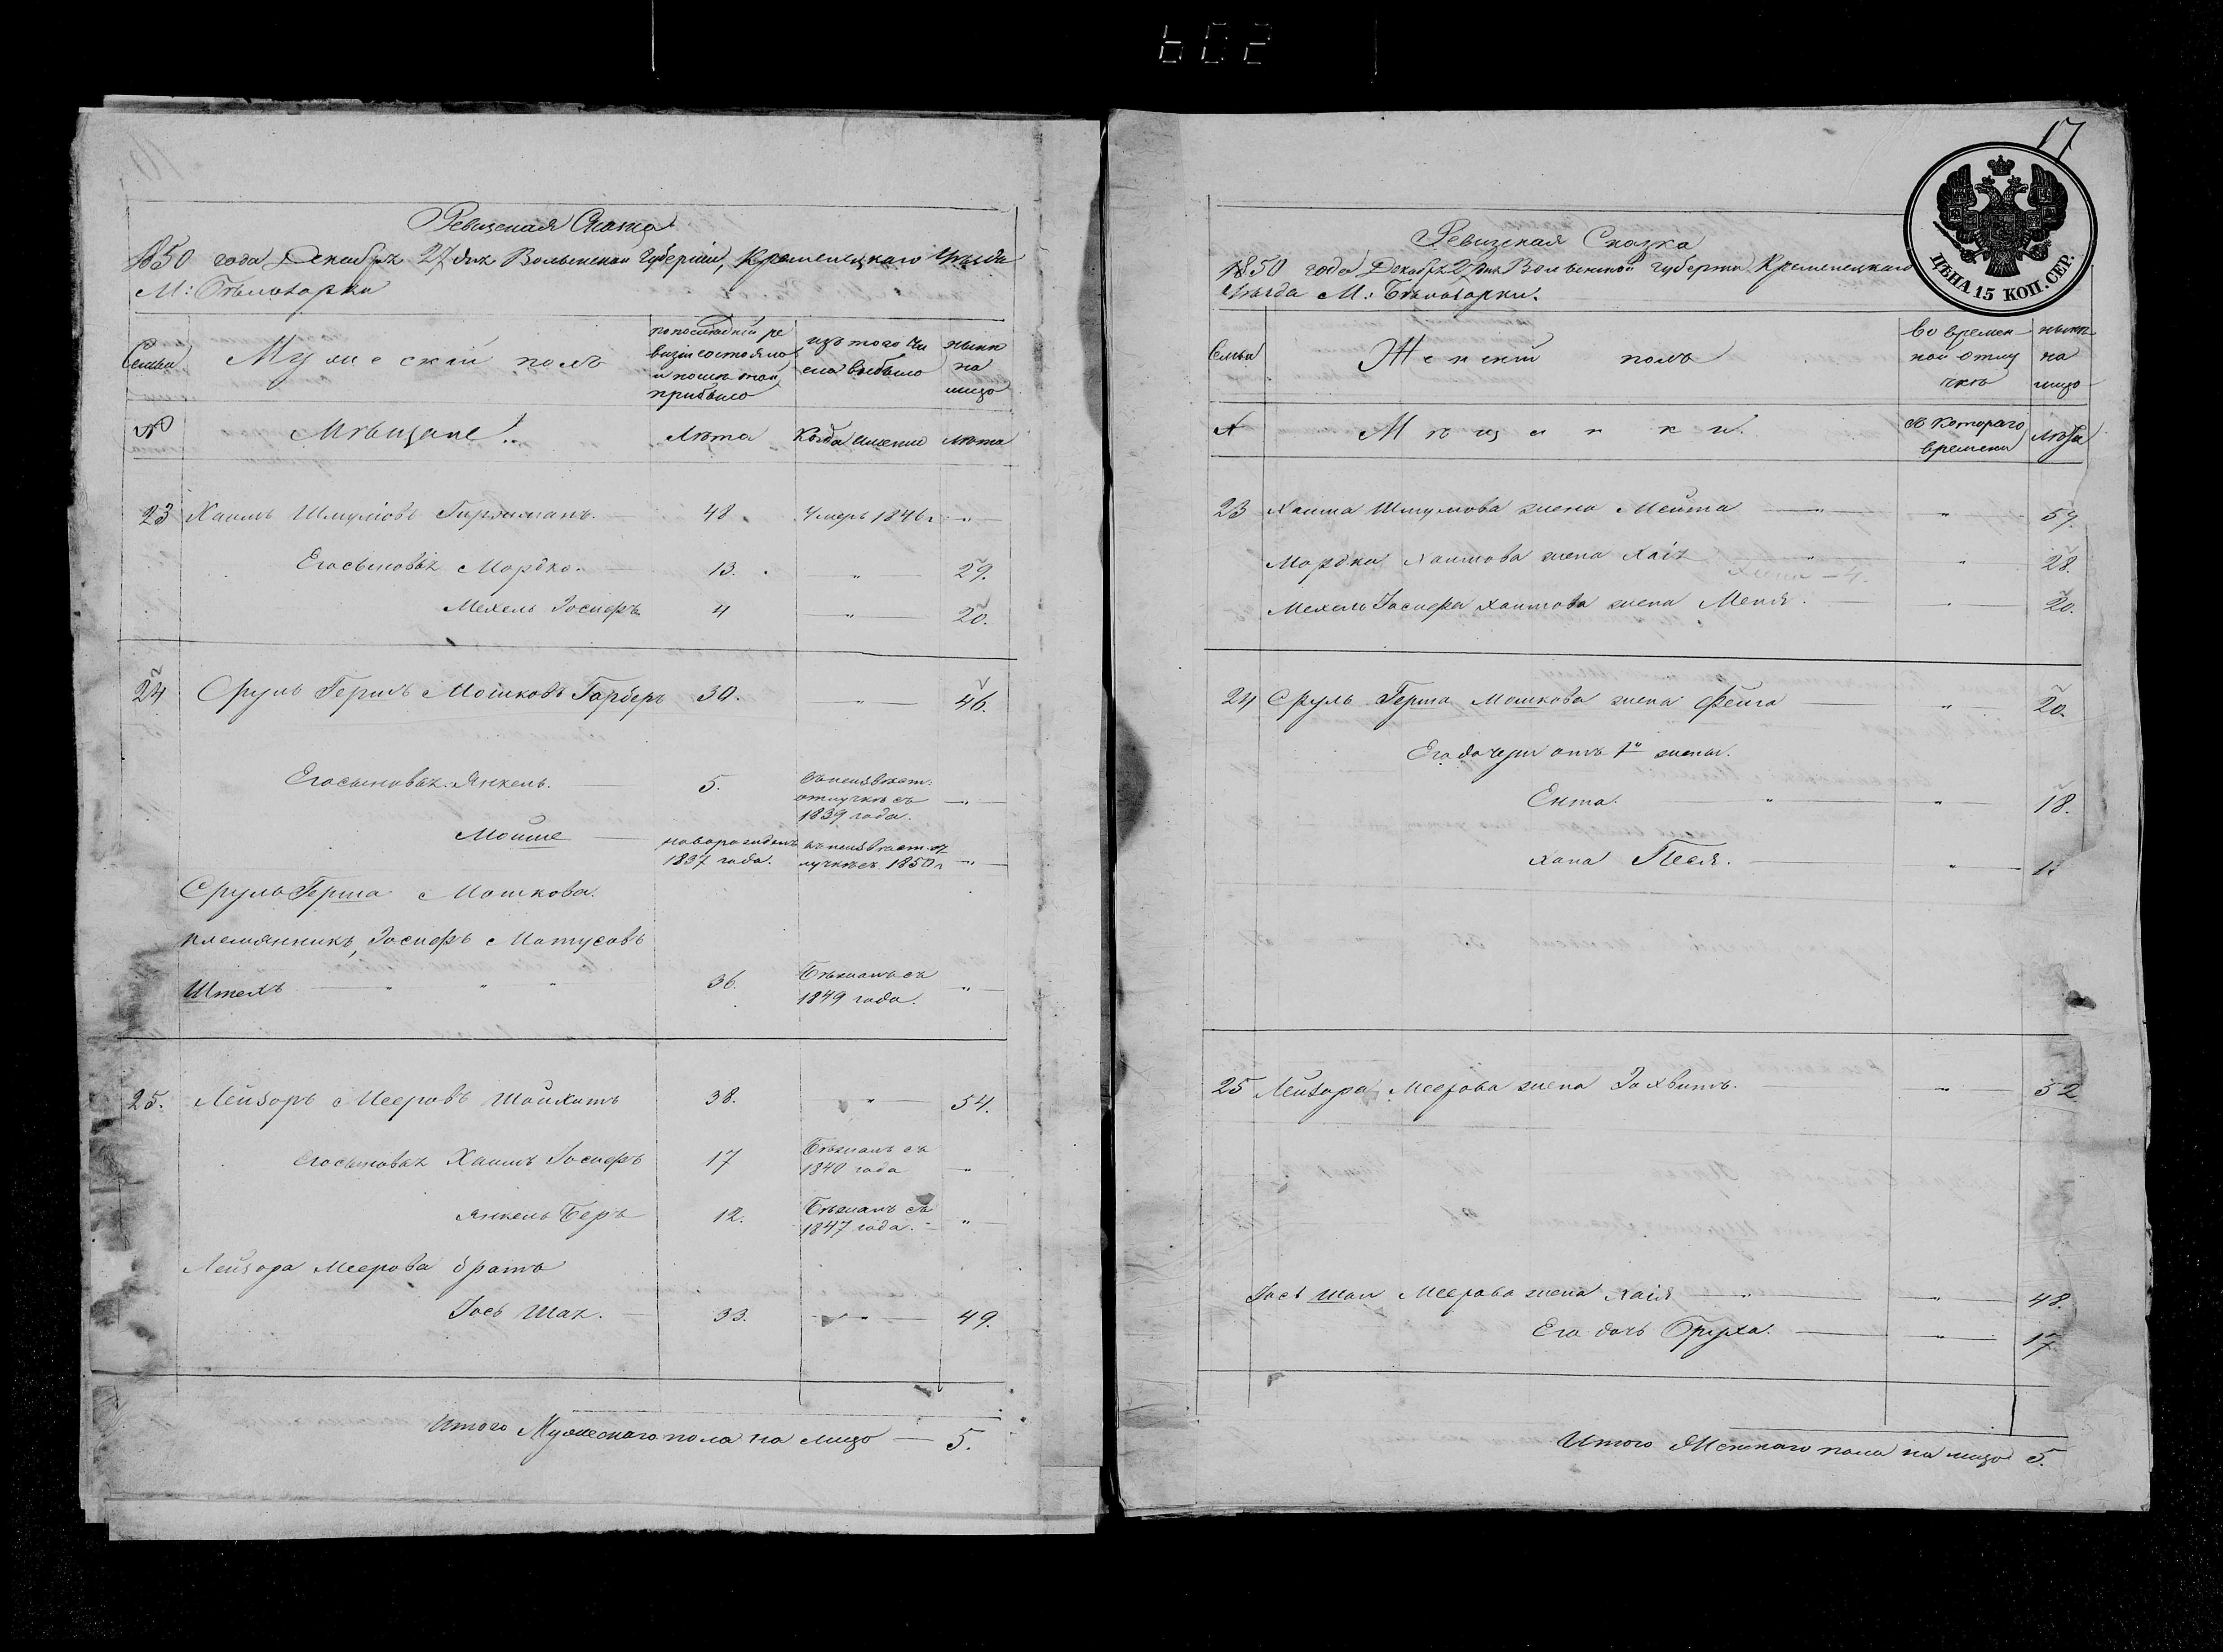 602
Ревизская Сказка
1850 года Декабря 27 дня Волынской Губернии, Кременецкаго Уезда
М: Бѣлозорки
Семьи
Мужескій полъ
по последней ре
визіи состояло
и после той
прибыло
изъ того чи
сла выбыло
нынѣ
на
лицо
№
Мѣщане.
Лѣта
Когда именно
лѣта
23 Хаимъ Шмуліовъ 48. Умеръ 1846 г "
Его сыновья Мордко. 13. " 29.
Мехель Іосифъ 4 " 20.
24 Сруль Гершъ Мошковъ Гарберъ 30. " 46.
Его сыновья Янкель. 5.
въ неизвест:
отлучкѣ съ
1839 года.
"
Мойше
новорожденъ
1837 года.
въ неизвест. от
лучкѣ съ 1850 г
"
Сруль Герша Мошкова
племянникъ, Іосифъ Мотусовъ
Штехъ " " " 36.
Бѣжалъ съ
1849 года.
"
25. Лейзоръ Мееровъ Шойхитъ 38. " 54.
его сыновья Хаимъ Іосифъ 17
Бѣжалъ съ
1840 года
"
Янкель Беръ 12.
Бѣжалъ съ
1847 года.
"
Лейзора Меерова братъ
Іось Шая. 33. " 49.
Итого Мужескаго пола на лицо — 5.
17
ЦѢНА 15 КОП. СЕР.
Ревизская Сказка
1850 года Декабря 27 дня Волынской губерніи Кременецкаго
Уѣзда М: Бѣлозорки.
Семьи
Женскій полъ
во времен
ной отлу
чкѣ
нынѣ
на
лицо
№
Мѣщанки.
съ котораго
времени
Лѣта
23 Хаима Шмулова жена Мейта " "
Мордка Хаимова жена Хаія " " 28.
Мехель Іосифа Хаимова жена Меня. " 20.
24 Сруль Герша Мошкова жена Фейга " 20.
Его дочери отъ 1й жены.
Ента. " " 18.
Хана Песя. "
25 Лейзора Меерова жена " 52.
Іось Шаи Меерова жена Хаія " " 48.
Его дочь Бруха. " 17
Итого Женскаго пола на лицо 5.